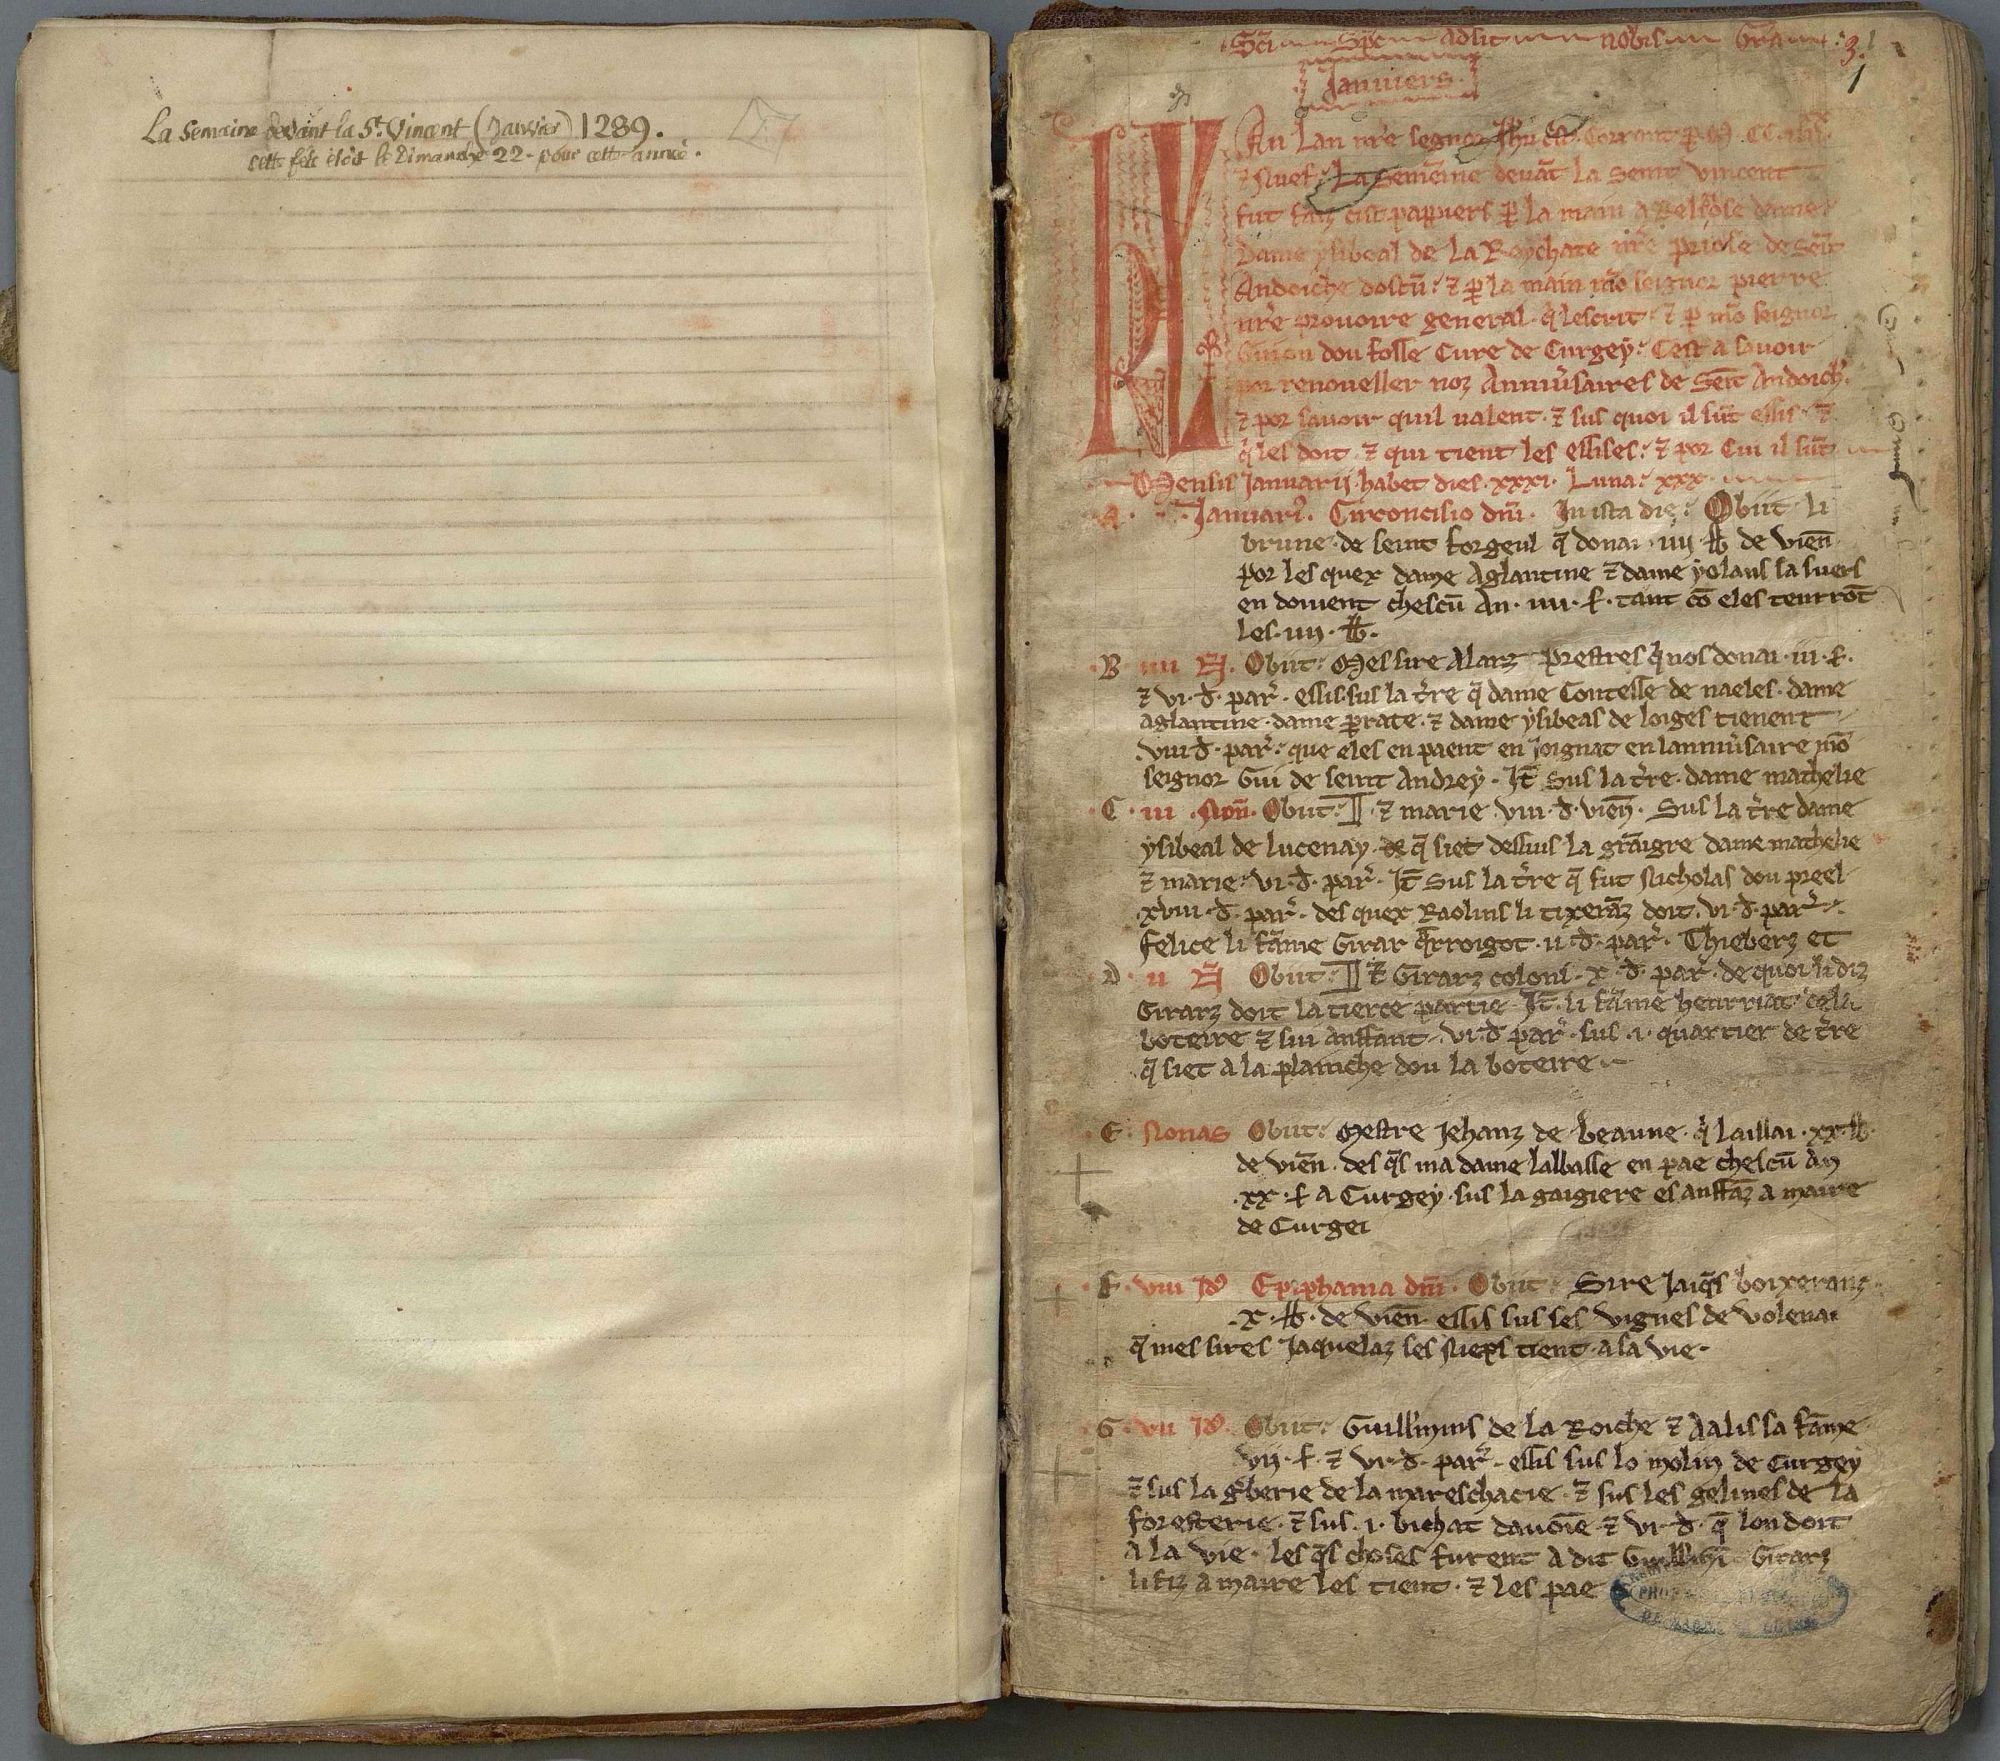 La Semaine devant la St. Vincent (Janvier) 1289.
cette fête étoit le Dimanche 22. pour cette année.
Sci Sp̄c adsit nobis Gra
3.
1
Januiers.
KL
An Lan nr̄e segnor Corrant p M. CC.
⁊ Nuef. La Semēine deuāt la Seint Vincent
fut faiz cist papiers p̱ la main a Religiose dame
Dame ysibeal de La Roychate nr̄e priose de Seīt
Andoiche dostū. ⁊ p̱ la main mō seignor pierre
nr̄e prouoire general. q̄ lescrit. ⁊ p̱ mō seignor
Guion dou fosse Cure de Curgey. Cest a sauoir
por renoueller noz Anniu̾saires de Seīt Andoich̾.
⁊ por sauoir quil ualent. ⁊ sus quoi il sūt essis. ⁊
q̄ les doit. ⁊ qui tient les essises. ⁊ por Cui il sūt
Mensis Januarij. habet dies. xxxi. Luna. xxx.
A. Januari᾽. Circoncisio dn̄i. In ista die. Obiit li
brune de seint forgeul q̄ donai. iiij. ℔ de vien̄.
por les quex dame Aglantine ⁊ dame yolans sa suers
en doiuent chescū An. iiii. s. tant cō eles tenrrōt
les. iiij. ℔.
B iiii N̄. Obiit. Messire Alarz Prestres q̄ nos donai. iii. s.
⁊ vi. d. par̾. essis. sus la t̾re q̄ dame Contesse de naeles. dame
aglantine. dame p̱rate. ⁊ dame ysibeas de loiges tienent
viii d. par̾. que eles en paent en Joignat en lanniu̾saire mō
seignor Gui de seint Andrey. It̄ Sus la t̾re. dame mathelie
C. iii. Non̄. Obiit. ⁊ marie. viii. d. vien̄. Sus la t̾re dame
ysibeal de lucenay. q̄ siet dessus la grāigre dame mathelie
⁊ marie. vi. d. par̾. It̄ Sus la t̾re q̄ fut Nicholas dou preel.
xviii. d. par̾. des quex Raolins li tixerāz doit. vi. d. par̾.
felice li fāme Girar q̾rroigot. ii d. par̾. Thieberz et
D. ii N̄ Obiit. ⁊ Girarz coloni. x. d. par̾. de quoi li diz
Girarz doit la tierce partie. It̄. li fāme henrriat
boteire ⁊ sui anffant. vi. d par̾. sus. i. quartier de t̾re
q̄ siet a la planiche dou la boteire.
E. Nonas Obiit. Mestre Jehanz de beaune. q̄ laissai. xx. ℔.
de vien̄. des q̄s ma dame labbasse en pae chescū An
xx. s a Curgey. sus la gaigiere es anffāz a maire
de Curgei
F. viii Id᾽ Epiphania dn̄i. Obiit. Sire Jaiq̄s boixeranz
x. ℔. de vien̄. essis sus ses vignes de volenai
q̄ mes sires Jaquelaz ses Nies tient. a la vie.
G. vii Id᾽. Obiit. Guill̾mins de la Roiche ⁊ Aalis sa fāme.
vij. s. ⁊ vi. d. par̾. essis sus lo molin de Curgey
⁊ sus la g̾berie de la mareschacie. ⁊ sus les gelines de la
foresterie. ⁊ sus. i. bichat dauoīe. ⁊ vi. d. q̄ lon doit
a la vie. les q̄s choses furent a dit Girarz
li fiz a maire les tient. ⁊ les pae